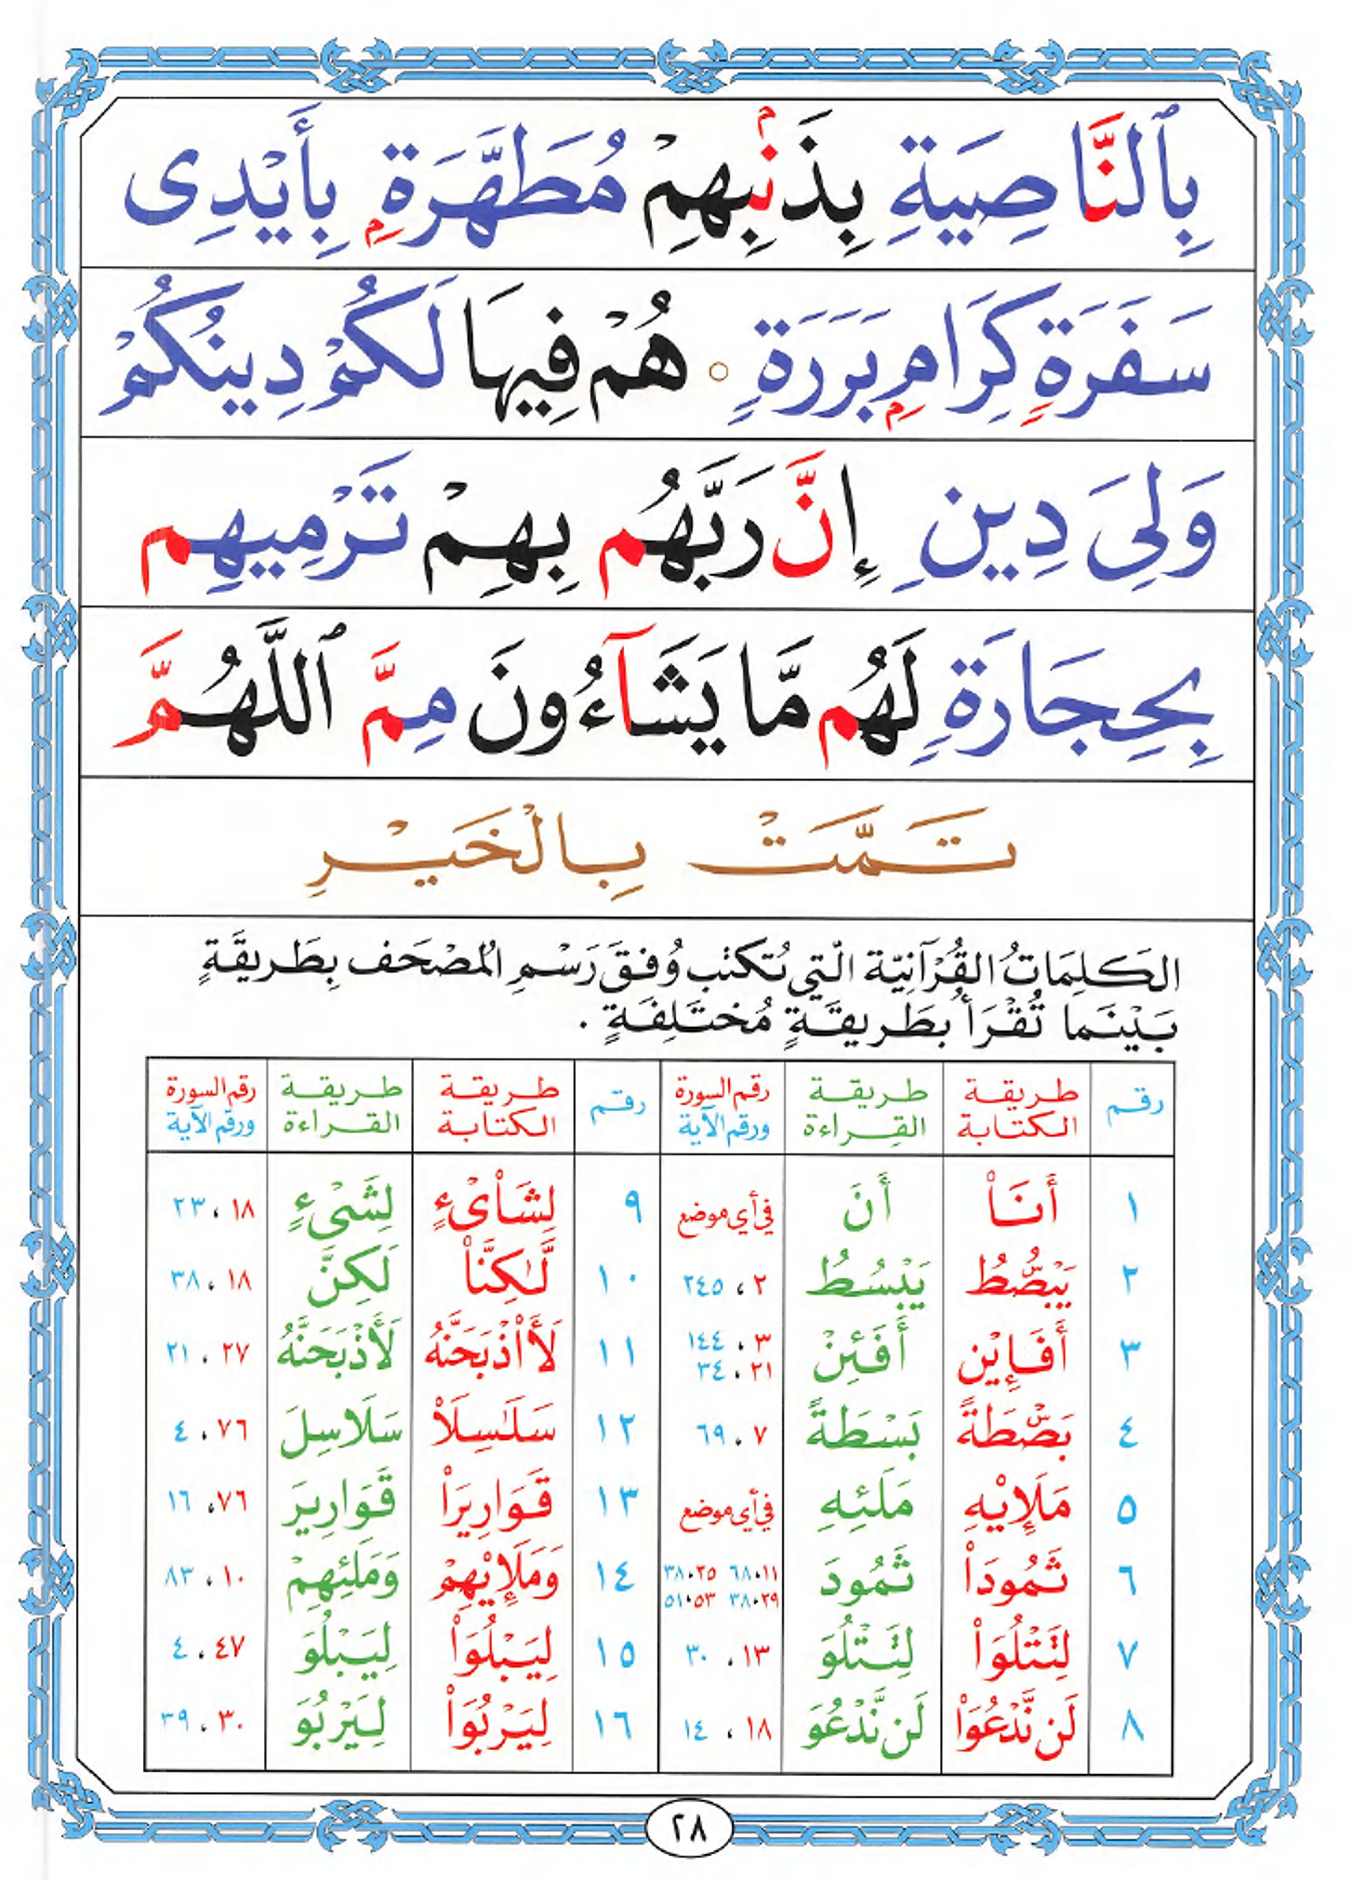 بِٱلنَّاصِيَةِ بِذَنۢبِهِمْ مُطَهَّرَةٍۭ بِأَيْدِى
سَفَرَةٍ كِرَامٍۭ بَرَرَةٍ ○ هُمْ فِيهَا لَكُمْ دِينُكُمْ
وَلِىَ دِينِ إِنَّ رَبَّهُم بِهِمْ تَرْمِيهِم
بِحِجَارَةٍ لَهُم مَّا يَشَآءُونَ مِمَّ ٱللَّهُمَّ
تَمَّتْ بِالْخَيْرِ
الكَلِمَاتُ القُرْآنِيّة الّتِي تُكتَب وُفقَ رَسْمِ المُصْحَف بِطَريقَةٍ
بَيْنَما تُقْرَأُ بطَريقَةٍ مُختَلِفَةٍ .
رقم طريقة الكتابة طريقة القراءة رقم السورة ورقم الآية رقم طريقة الكتابة طريقة القراءة رقم السورة ورقم الآية
١ أَنَا۠ أَنَ في أي موضع ٩ لِشَا۟ىْءٍ لِشَىْءٍ ١٨ ، ٢٣
٢ يَبْصُۜطُ يَبْسُطُ ٢ ، ٢٤٥ ١٠ لَّٰكِنَّا۠ لَكِنَّ ١٨ ، ٣٨
٣ أَفَإِيْن أَفَئِنْ ٣ ، ١٤٤ ٢١ ، ٣٤ ١١ لَأَا۟ذْبَحَنَّهُ لَأَذْبَحَنَّهُ ٢٧ ، ٢١
٤ بَصْۜطَةً بَسْطَةً ٧ ، ٦٩ ١٢ سَلَٰسِلَا۟ سَلَاسِلَ ٧٦ ، ٤
٥ مَلَإِيْهِ مَلَئِهِ في أي موضع ١٣ قَوَارِيرَا۟ قَوَارِيرَ ٧٦ ، ١٦
٦ ثَمُودَا۟ ثَمُودَ ١١ ، ٦٨ ٢٥ ، ٣٨ ٢٩ ، ٣٨ ٥٣ ، ٥١ ١٤ وَمَلَإِيْهِمْ وَمَلَئِهِمْ ١٠ ، ٨٣
٧ لِتَتْلُوَا۟ لِتَتْلُوَ ١٣ ، ٣٠ ١٥ لِيَبْلُوَا۟ لِيَبْلُوَ ٤٧ ، ٤
٨ لَن نَّدْعُوَا۟ لَن نَّدْعُوَ ١٨ ، ١٤ ١٦ لِيَرْبُوَا۟ لِيَرْبُوَ ٣٠ ، ٣٩
٢٨